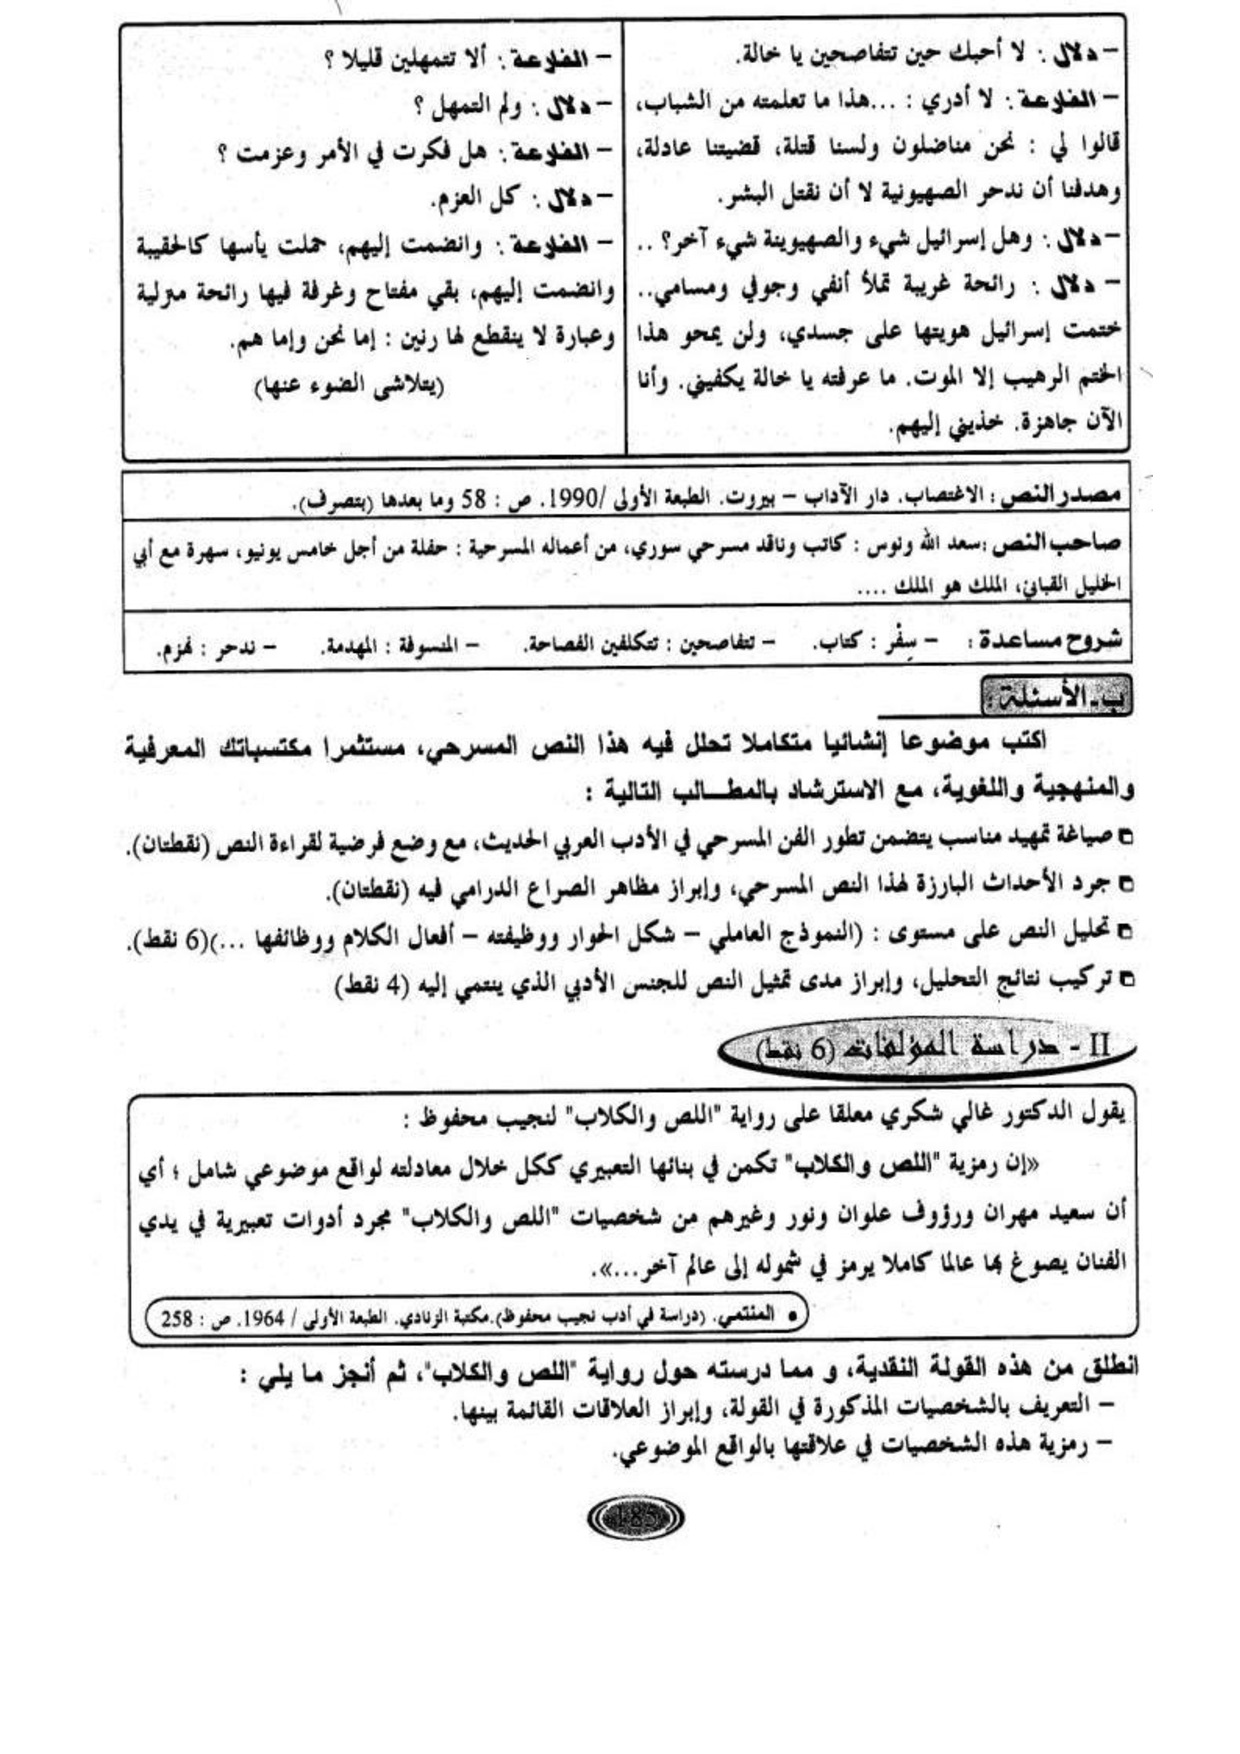 – دلال : لا أحبك حين تتفاصحين يا خالة.
– الفارعة : لا أدري : ...هذا ما تعلمته من الشباب،
قالوا لي : نحن مناضلون ولسنا قتلة، قضيتنا عادلة،
وهدفنا أن ندحر الصهيونية لا أن نقتل البشر.
– دلال : وهل إسرائيل شيء والصهيوينة شيء آخر؟ ..
– دلال : رائحة غريبة تملأ أنفي وجوفي ومسامي..
ختمت إسرائيل هويتها على جسدي، ولن يمحو هذا
الختم الرهيب إلا الموت. ما عرفته يا خالة يكفيني. وأنا
الآن جاهزة. خذيني إليهم.
– الفارعة : ألا تتمهلين قليلا ؟
– دلال : ولم التمهل ؟
– الفارعة : هل فكرت في الأمر وعزمت ؟
– دلال : كل العزم.
– الفارعة : وانضمت إليهم، حملت يأسها كالحقيبة
وانضمت إليهم، بقي مفتاح وغرفة فيها رائحة منزلية
وعبارة لا ينقطع لها رنين : إما نحن وإما هم.
(يتلاشى الضوء عنها)
مصدر النص : الاغتصاب. دار الآداب – بيروت. الطبعة الأولى /1990. ص : 58 وما بعدها (بتصرف).
صاحب النص :سعد الله ونوس : كاتب وناقد مسرحي سوري، من أعماله المسرحية : حفلة من أجل خامس يونيو، سهرة مع أبي
الخليل القباني، الملك هو الملك ....
شروح مساعدة : – سِفْر : كتاب. – تتفاصحين : تتكلفين الفصاحة. – المنسوفة : المهدمة. – ندحر : نهزم.
ب-الأسئلة :
اكتب موضوعا إنشائيا متكاملا تحلل فيه هذا النص المسرحي، مستثمرا مكتسباتك المعرفية
والمنهجية واللغوية، مع الاسترشاد بالمطــالب التالية :
صياغة تمهيد مناسب يتضمن تطور الفن المسرحي في الأدب العربي الحديث، مع وضع فرضية لقراءة النص (نقطتان).
جرد الأحداث البارزة لهذا النص المسرحي، وإبراز مظاهر الصراع الدرامي فيه (نقطتان).
تحليل النص على مستوى : (النموذج العاملي – شكل الحوار ووظيفته – أفعال الكلام ووظائفها ...)(6 نقط).
تركيب نتائج التحليل، وإبراز مدى تمثيل النص للجنس الأدبي الذي ينتمي إليه (4 نقط)
II - دراسة المؤلفات (6 نقط)
يقول الدكتور غالي شكري معلقا على رواية "اللص والكلاب" لنجيب محفوظ :
«إن رمزية "اللص والكلاب" تكمن في بنائها التعبيري ككل خلال معادلته لواقع موضوعي شامل ؛ أي
أن سعيد مهران ورؤوف علوان ونور وغيرهم من شخصيات "اللص والكلاب" مجرد أدوات تعبيرية في يدي
الفنان يصوغ بها عالما كاملا يرمز في شموله إلى عالم آخر...».
• المنتمي. (دراسة في أدب نجيب محفوظ).مكتبة الزنادي. الطبعة الأولى / 1964. ص : 258
انطلق من هذه القولة النقدية، و مما درسته حول رواية "اللص والكلاب"، ثم أنجز ما يلي :
– التعريف بالشخصيات المذكورة في القولة، وإبراز العلاقات القائمة بينها.
– رمزية هذه الشخصيات في علاقتها بالواقع الموضوعي.
185